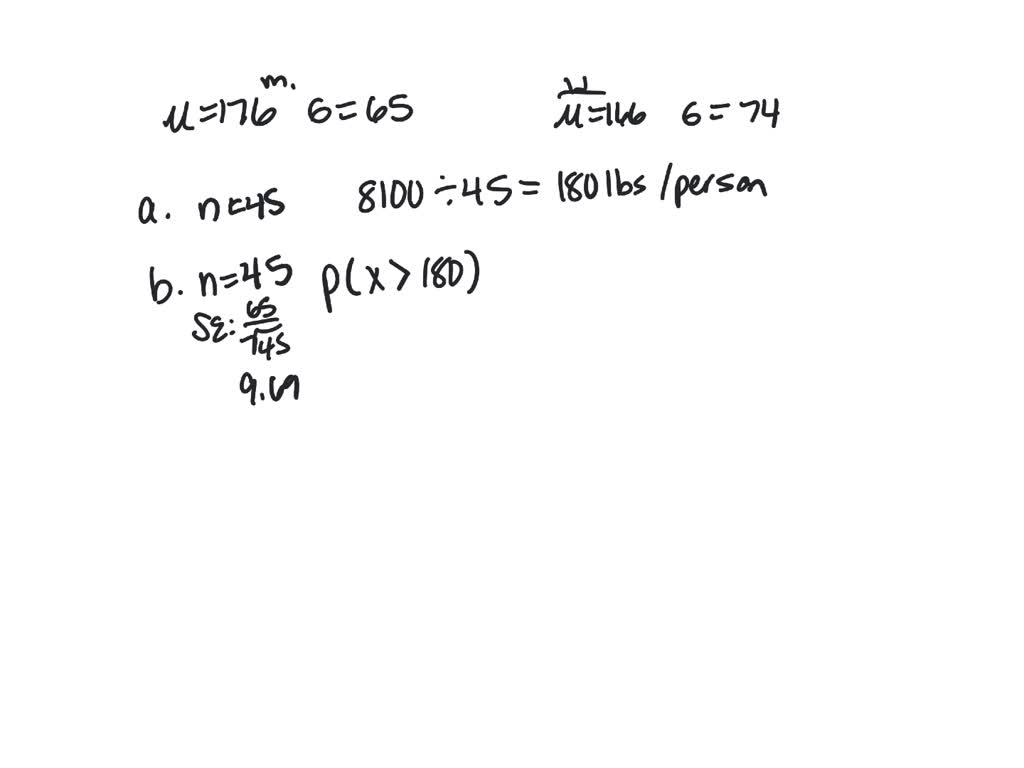 m. W
μ=176 σ=65 μ=166 σ=74
a. n=45 8100÷45=180lbs/person
b. n=45 p(x>180)
SE: 65/√45
9.69